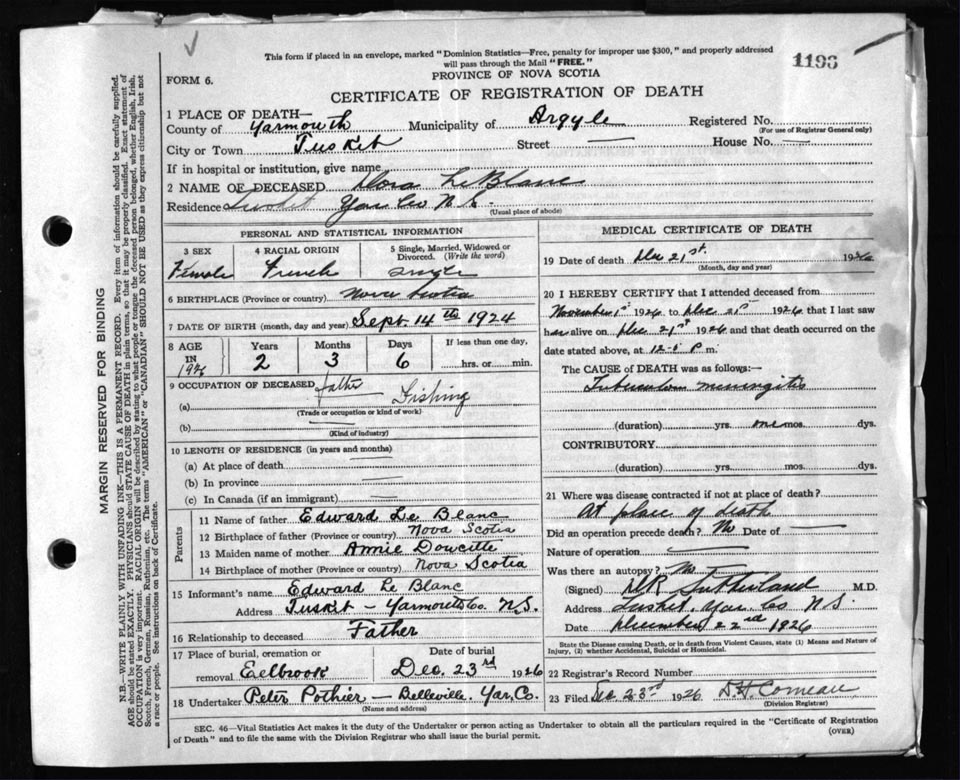 This form if placed in an envelope, marked "Dominion Statistics—Free, penalty for improper use $300," and properly addressed
will pass through the Mail "FREE."
1193
FORM 6.
PROVINCE OF NOVA SCOTIA
CERTIFICATE OF REGISTRATION OF DEATH
1 PLACE OF DEATH—
County of Yarmouth Municipality of Argyle Registered No.
(For use of Registrar General only)
City or Town Tusket Street — House No. —
If in hospital or institution, give name
2 NAME OF DECEASED LeBlanc
Residence Tusket Yar Co N.S.
(Usual place of abode)
PERSONAL AND STATISTICAL INFORMATION
3 SEX 4 RACIAL ORIGIN 5 Single, Married, Widowed or
Divorced. (Write the word)
Female French single
6 BIRTHPLACE (Province or country) Nova Scotia
7 DATE OF BIRTH (month, day and year) Sept. 14th 1924
8 AGE Years Months Days If less than one day,
IN 1926 2 3 6 hrs. or min.
9 OCCUPATION OF DECEASED father
(a) Fishing
(Trade or occupation or kind of work)
(b)
(Kind of industry)
10 LENGTH OF RESIDENCE (in years and months)
(a) At place of death —
(b) In province —
(c) In Canada (if an immigrant) —
Parents
11 Name of father Edward Le Blanc
12 Birthplace of father (Province or country) Nova Scotia
13 Maiden name of mother Annie Doucette
14 Birthplace of mother (Province or country) Nova Scotia
15 Informant's name Edward Le Blanc
Address Tusket – Yarmouth Co. N.S.
16 Relationship to deceased Father
17 Place of burial, cremation or Date of burial
removal Eelbrook Dec. 23rd 1926
18 Undertaker Peter Pothier – Belleville, Yar. Co.
(Name and address)
MEDICAL CERTIFICATE OF DEATH
19 Date of death Dec 21st. 1926
(Month, day and year)
20 I HEREBY CERTIFY that I attended deceased from
November 1st 1926 to Dec 21st 1926 that I last saw
her alive on Dec 21st 1926 and that death occurred on the
date stated above, at p m.
The CAUSE OF DEATH was as follows:—
Tubercular meningitis
(duration) yrs. one mos. dys.
CONTRIBUTORY.
(duration) yrs. mos. dys.
21 Where was disease contracted if not at place of death?
At place of death
Did an operation precede death? No Date of —
Nature of operation —
Was there an autopsy? No
(Signed) Sutherland M.D.
Address Tusket, Yar. Co N.S.
Date December 22nd 1926
State the Disease causing Death, or in death from Violent Causes, state (1) Means and Nature of
Injury, (2) whether Accidental, Suicidal or Homicidal.
22 Registrar's Record Number
23 Filed Dec 23rd 1926 Comeau
(Division Registrar)
SEC. 46—Vital Statistics Act makes it the duty of the Undertaker or person acting as Undertaker to obtain all the particulars required in the "Certificate of Registration
of Death" and to file the same with the Division Registrar who shall issue the burial permit.
(OVER)
MARGIN RESERVED FOR BINDING
N.B.—WRITE PLAINLY WITH UNFADING INK—THIS IS A PERMANENT RECORD. Every item of information should be carefully supplied.
AGE should be stated EXACTLY. PHYSICIANS should STATE CAUSE OF DEATH in plain terms, so that it may be properly classified. Exact statement of
OCCUPATION is very important. RACIAL ORIGIN will be described by stating to what people or tongue the deceased person belonged, whether English, Irish,
Scotch, French, German, Russian, Ruthenian, etc. The terms "AMERICAN" or "CANADIAN" SHOULD NOT BE USED as they express citizenship but not
a race or people. See instructions on back of Certificate.